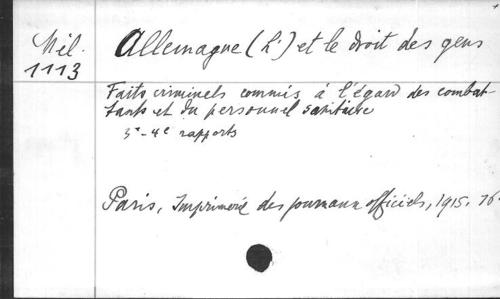 Mil.
1113
Allemagne (L') et le droit des gens
Faits criminels commis à l'égard des combat-
tants et du personnel sanitaire
3e - 4e rapports
Paris, Imprimerie des journaux officiels, 1915. 16°